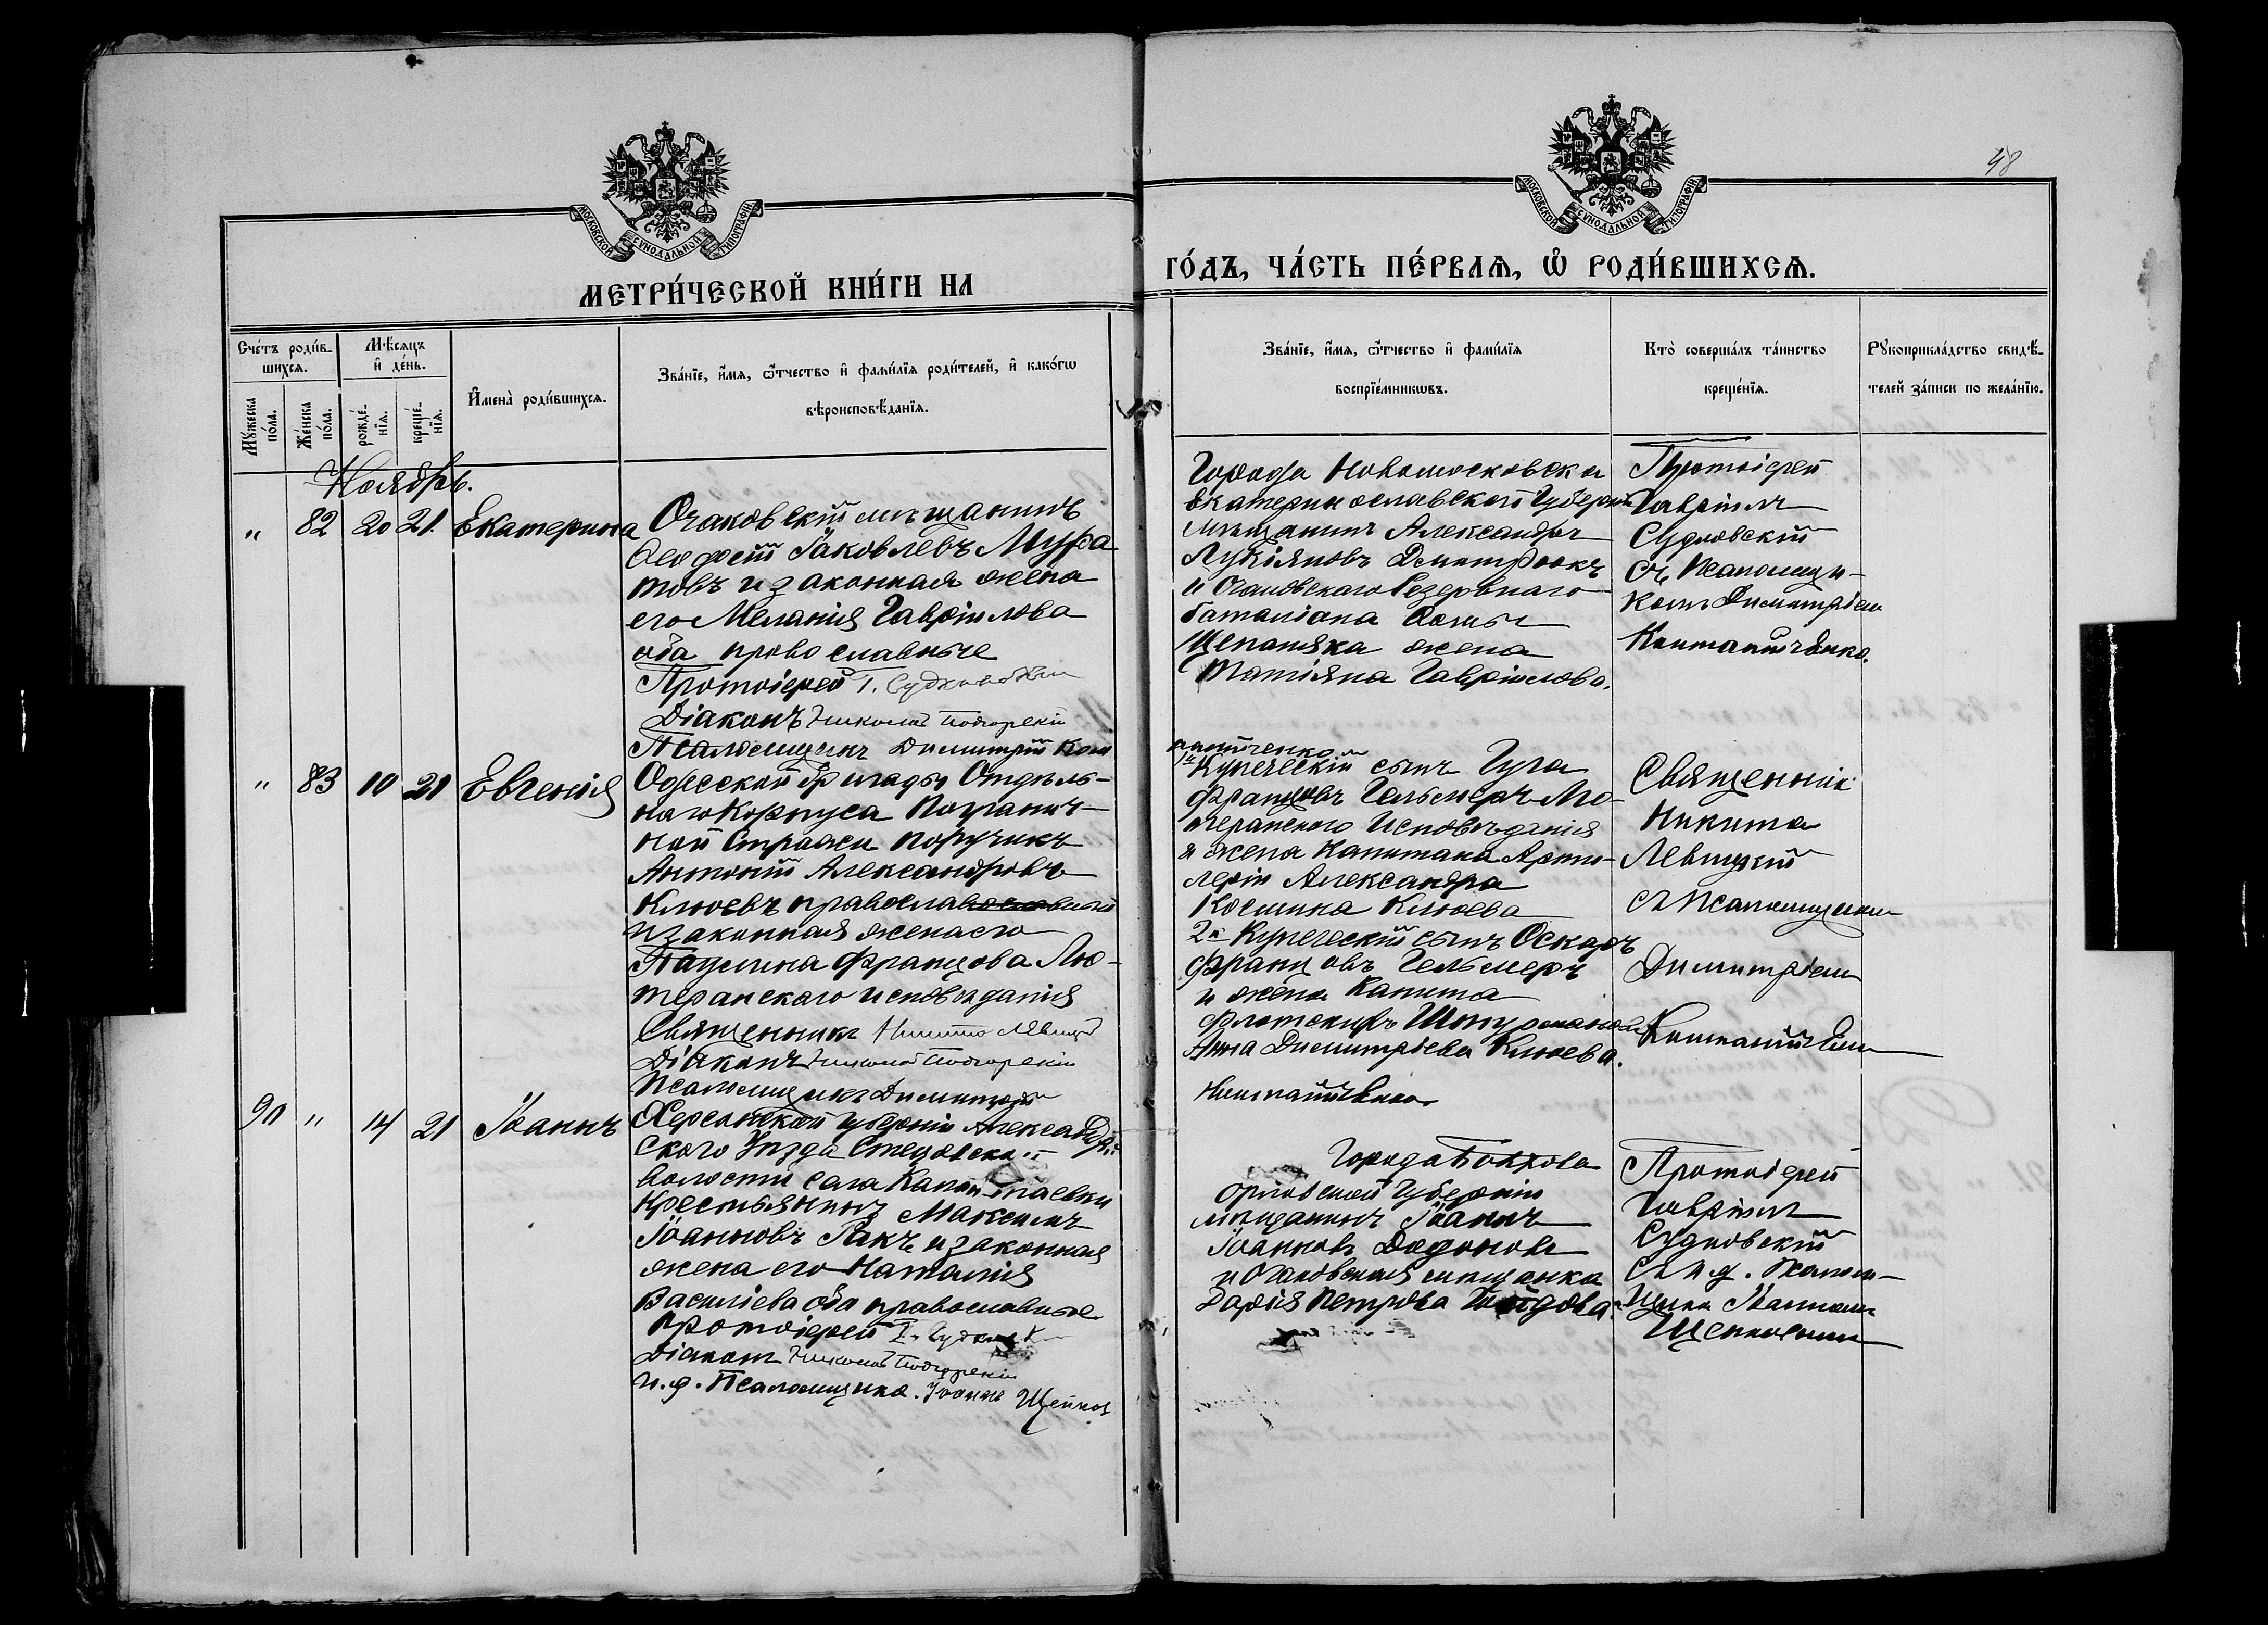 48
МОСКОВСКОЙ СѴНОДАЛЬНОЙ ТИПОГРАФІИ.
МОСКОВСКОЙ СѴНОДАЛЬНОЙ ТИПОГРАФІИ.
МЕТРИ́ЧЕСКОЙ КНИ́ГИ НА
ГО́ДЪ, ЧА́СТЬ ПЕ́РВАѦ, Ѡ҆ РОДИ́ВШИХСѦ.
Сче́тъ роди́в-
шихсѧ.
Мѣ́сѧцъ
и҆ де́нь.
Мꙋ́жеска
по́ла.
Же́нска
по́ла.
рожде́-
нїѧ.
креще́-
нїѧ.
И҆мена̀ роди́вшихсѧ.
Зва́нїе, и҆́мѧ, ѻ҆́тчество и҆ фами́лїѧ роди́телей, и҆ како́гѡ
вѣроисповѣ́данїѧ.
Зва́нїе, и҆́мѧ, ѻ҆́тчество и҆ фами́лїѧ
воспрїе́мникѡвъ.
Кто̀ соверша́лъ та́инство
креще́нїѧ.
Рꙋкоприкла́дство свидѣ́-
телей за́писи по жела́нїю.
Ноябрь.
" 82 20 21. Екатерина
Очаковскій мѣщанинъ
Ѳеодосій Іаковлевъ Мура
товъ и законная жена
его Меланія Гавріилова
оба православные
Протоіерей Г. Судковскій
Діаконъ Николай Подгорскій
Псаломщикъ Димитрій Кон
Города Новомосковска
Екатеринославской Губерніи
мѣщанинъ Александръ
Лукіяновъ Дмитрюкъ
и Очаковскаго Резервнаго
баталіона
жена
Татіяна Гавріилова.
Протоіерей
Гавріилъ
Судковскій
съ Псаломщи-
комъ Димитріем
" 83 10 21 Евгенія
Одесской бригады Отдѣль-
наго Корпуса Погранич-
ной Стражи поручикъ
Антоній Александровъ
Клюевъ православный
и законная жена его
Паулина Францова Лю-
теранскаго исповѣданія
Священникъ Никита Левицкій
Діаконъ Николай Подгорскій
Псаломщикъ Димитрій
1й Купеческій сынъ Гуга
Францовъ Гельмеръ Лю-
теранского Исповѣданія
и жена Капитана Арти-
леріи Александра
Косьмина Клюева
2й Купеческій сынъ Оскаръ
Францовъ Гельмеръ
и жена Капита
Флотскихъ
Анна Димитріева Клюева.
Священник
Никита
Левицкій
съ Псаломщиком
Димитріем
90 " 14 21 Іоаннъ
Херсонской губерніи Александрій
ского Уѣзда
волости села
крестьянинъ Максимъ
Іоанновъ Ракъ и законная
жена его Наталія
Василіева оба православные
Протоіерей Г. Судковскій
Діаконъ Николай Подгорскій
и. д. Псаломщика. Іоаннъ
Города Болхова
Орловской Губерніи
мѣщанинъ Іоаннъ
Іоанновъ Додоновъ
и Очаковская мѣщанка
Дарія Петрова
Протоіерей
Гавріилъ
Судковскій
Съ и. д. Псалом-
щика Іоанномъ